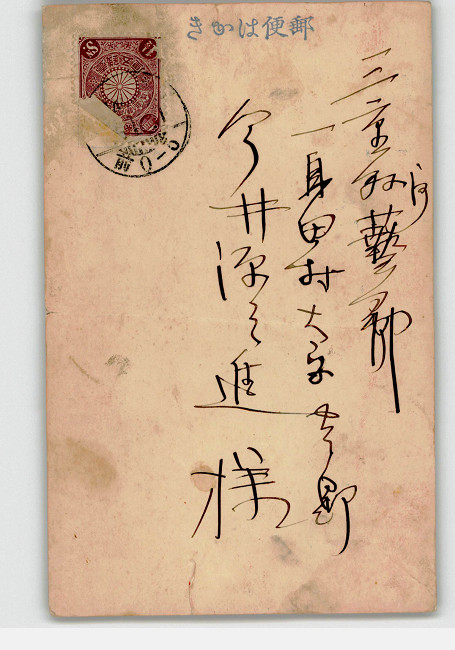 郵便はかき
三重縣河藝郡
一身田村大字豊野
今井源之進様